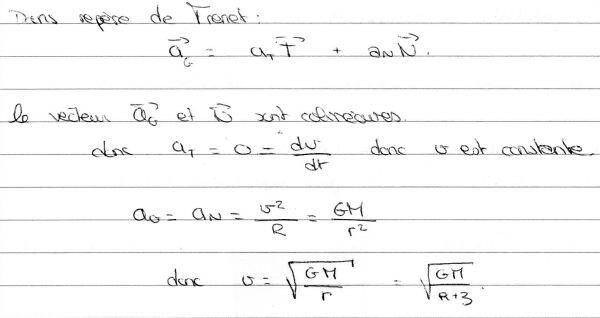 Dans repère de Frenet :
a⃗_G = a_T T⃗ + a_N N⃗.
le vecteur a⃗_G et U⃗ sont colinéaires.
donc a_T = 0 = dv/dt donc v est constante.
a_G = a_N = v²/R = GM/r²
donc v = √(GM/r) = √(GM/(R+z)).